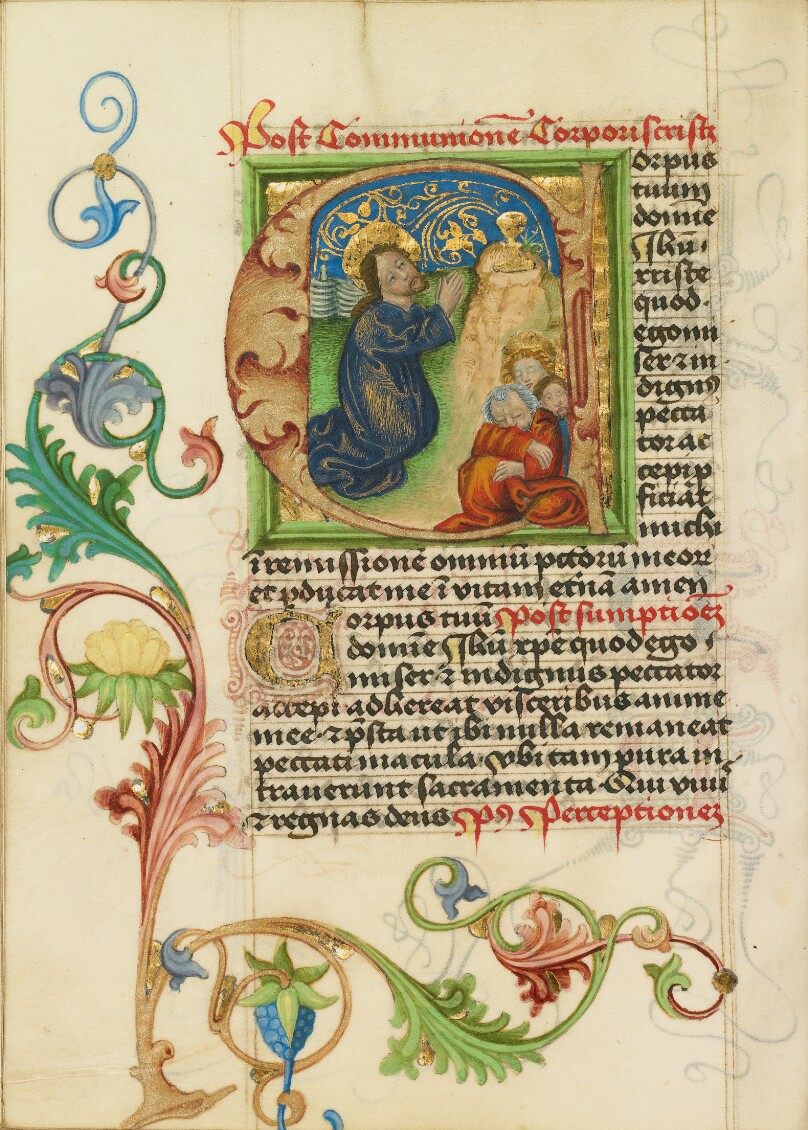 Post Communionē Corporis cristi
Corpus
tuum
domie
Ihū.
xriste
quod.
ego mi
ser ⁊ in
dignꝰ
pecca
tor ac
cepi p̄
ficiāt
michi
ī remissionē omniū pctorū meor
et pducat me ī vitam et̄nā amen
Corpus tuū Post sumptionez
domie Ihū xpē quod ego
miser ⁊ indignus peccator
accepi adhereat visceribus anime
mee ⁊ p̄sta ut ibi nulla remaneat
peccati macula . vbi tam pura in-
trauerunt sacramenta . Qui viuis
⁊ regnas deus Pꝰ Perceptionez